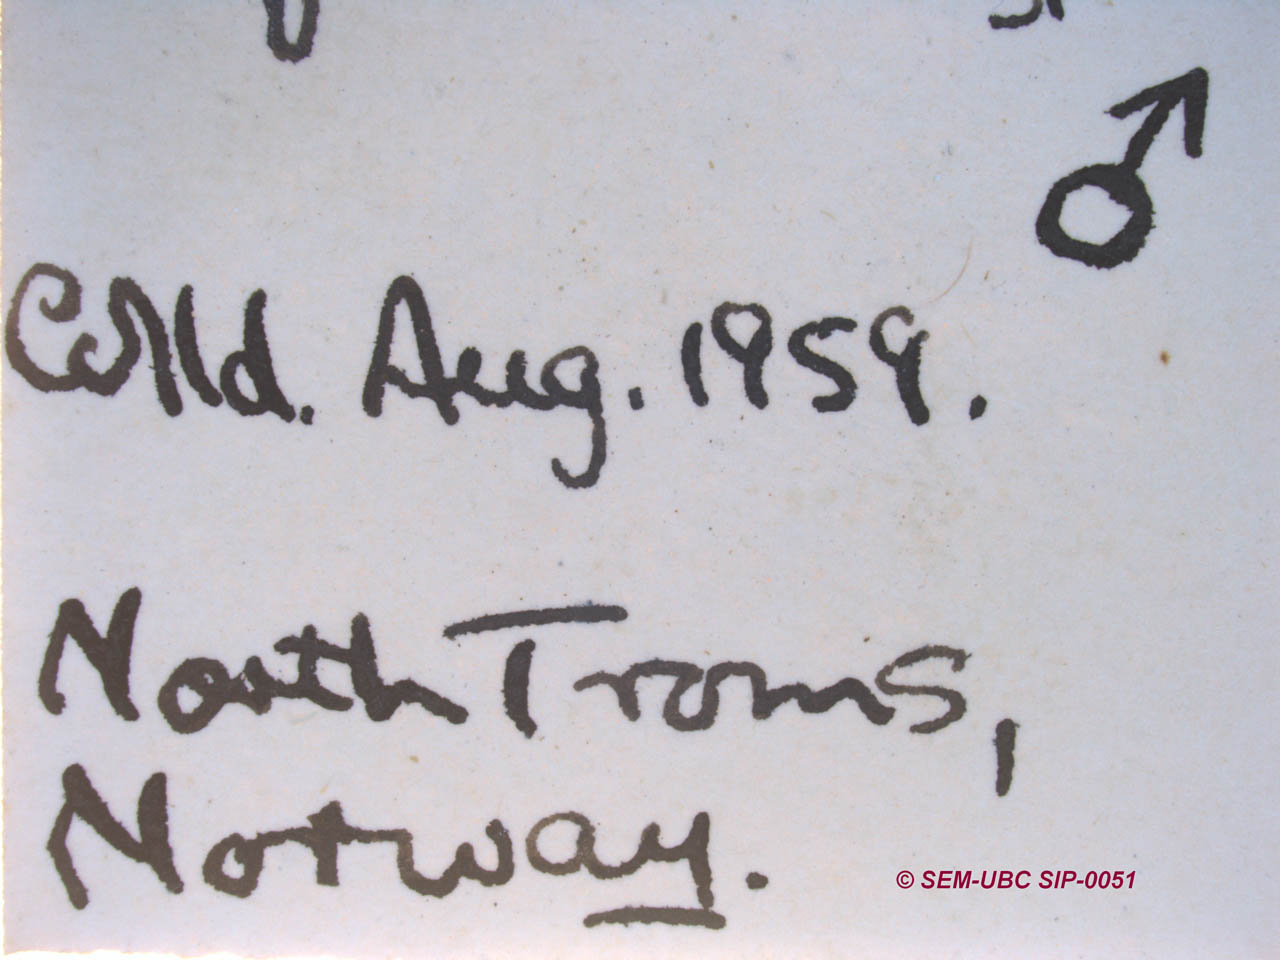 ♂
Colld. Aug. 1959.
North Troms,
Norway.
© SEM-UBC SIP-0051